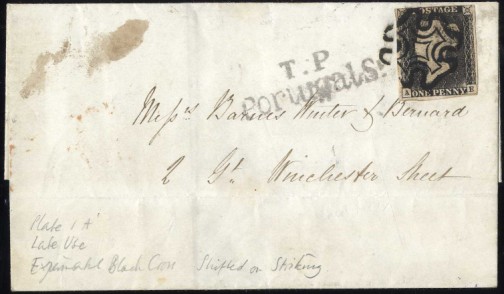 POSTAGE
T.P
Portugal St
A ONE PENNY E
Mess.rs Barnes Winter & Bernard
2 Gt. Winchester Street
Plate 1A
Late Use
Experimental Black Cross Shifted on Striking